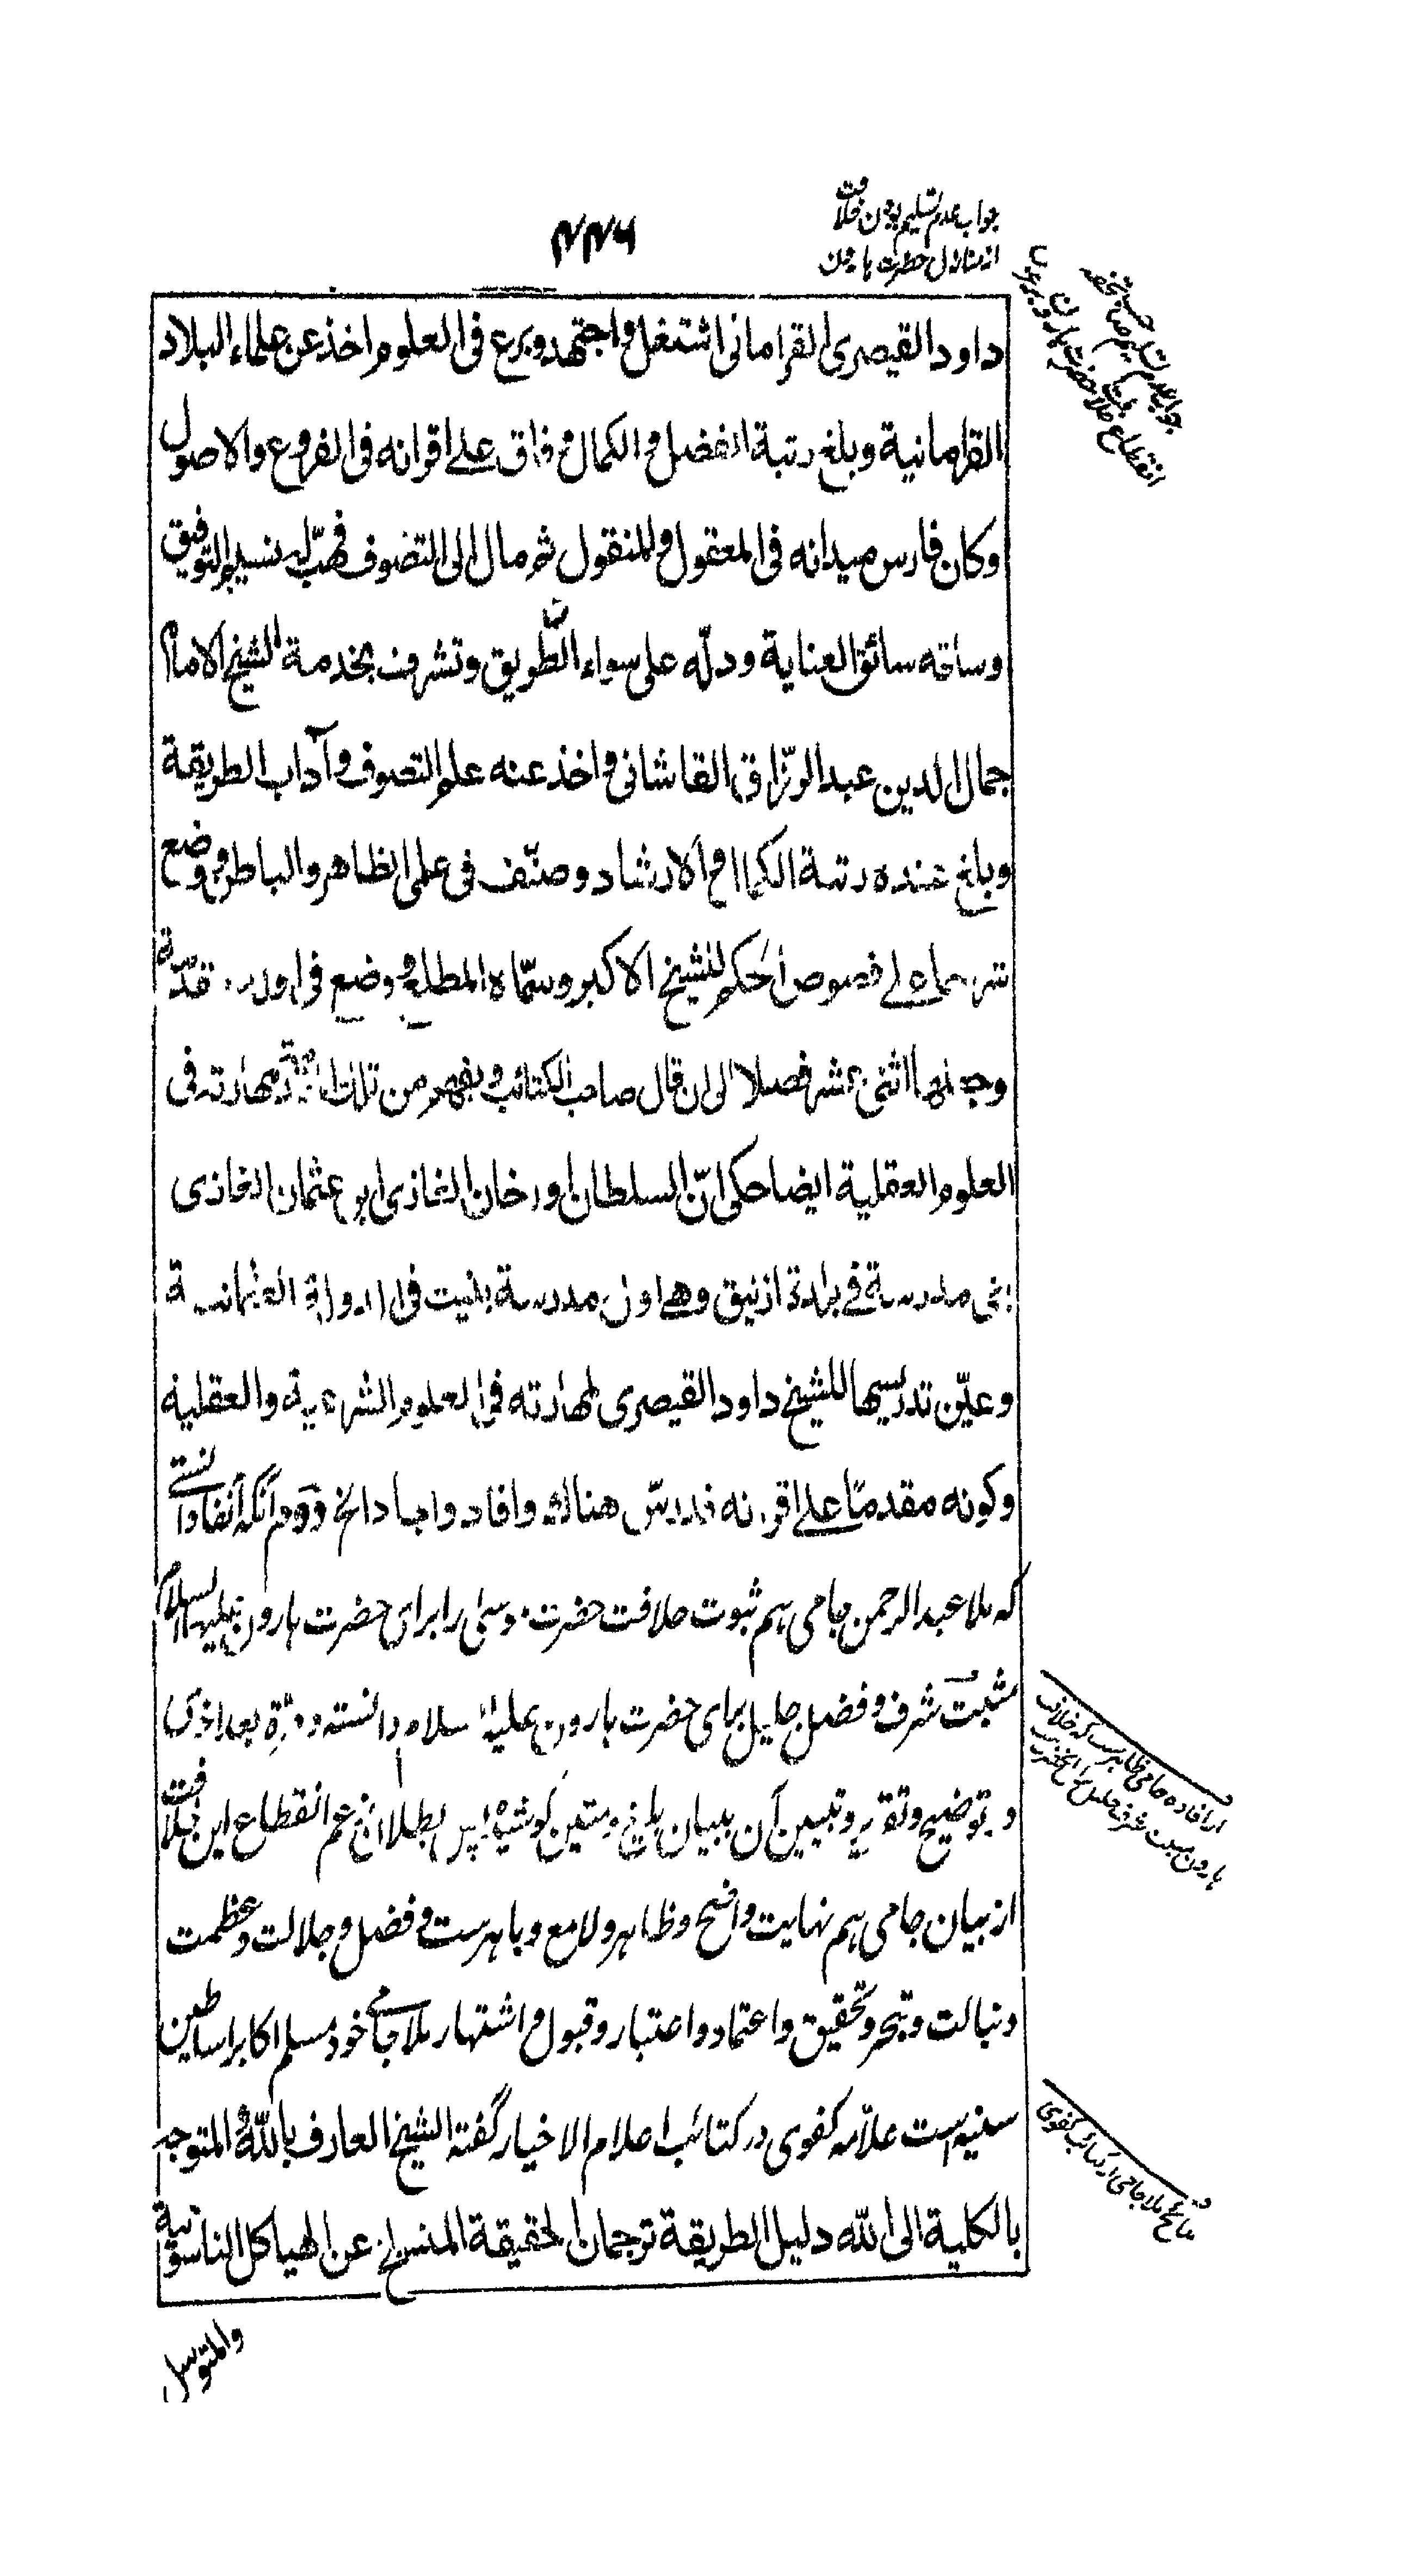 جواب عدم تسلیم بودن خلافت
از منازل حضرت هارون
۴۴۶
جواب عدم تسلیم صاحب تحفه
انقطاع خلافت حضرت هارون
داود القیصری القرامانی اشتغل واجتهد وبرع فی العلوم اخذ عن علماء البلاد
القرامانیة وبلغ رتبة الفضل والکمال وفاق علی اقرانه فی الفروع والاصول
وکان فارس میدانه فی المعقول والمنقول ثم مال الی التصوف فهبّ له نسیم التوفیق
وساقه سائق العنایة ودلّه علی سواء الطّریق وتشرف بخدمة الشیخ الامام
جمال الدین عبد الرزّاق القاشانی واخذ عنه علم التصوف وآداب الطریقة
وبلغ عنده رتبة الکمال والارشاد وصنّف فی علمی الظاهر والباطن ووضع
شرحا علی فصوص الحکم للشیخ الاکبر وسمّاه المطلع ووضع فی اوله مقدّمة
وجعلها اثنی عشر فصلا الی ان قال صاحب الکتائب ویفهم من تلک المقدمة مهارته فی
العلوم العقلیة ایضا حکی انّ السلطان اورخان الغازی ابن عثمان الغازی
بنی مدرسة فی بلدة ازنیق وهی اول مدرسة بنیت فی الدولة العثمانیة
وعیّن تدریسها للشیخ داود القیصری لمهارته فی العلوم الشرعیة والعقلیة
وکونه مقدمّا علی اقرانه فدرّس هناک وافاد واجاد الخ ودوم آنکه آنفا دانستی
که ملا عبد الرحمن جامی هم ثبوت خلافت حضرت موسی را برای حضرت هارون علیه السلام
مثبت شرف و فضل جلیل برای حضرت هارون علیه السلام دانسته و مرة بعد اخری
و بتوضیح و تقریر و تبیین آن ببیان بلیغ و متین کوشیده پس بطلان زعم انقطاع این خلافت
از بیان جامی هم نهایت واضح وظاهر ولامع وباهرست و فضل و جلالت و عظمت
و نبالت و تبحر و تحقیق واعتماد واعتبار و قبول و اشتهار ملا جامی خود مسلم اکابر اساطین
سنیه است علاّمه کفوی در کتائب اعلام الاخیار گفته الشیخ العارف بالله المتوجه
بالکلیة الی الله دلیل الطریقة ترجمان الحقیقة المنسلخ عن الهیاکل الناسوتیة
از افاده جامی ظاهر ست که خلافت
هارون مثبت شرف جلیل
مدائح ملا جامی از کتائب کفوی
والمتوسل